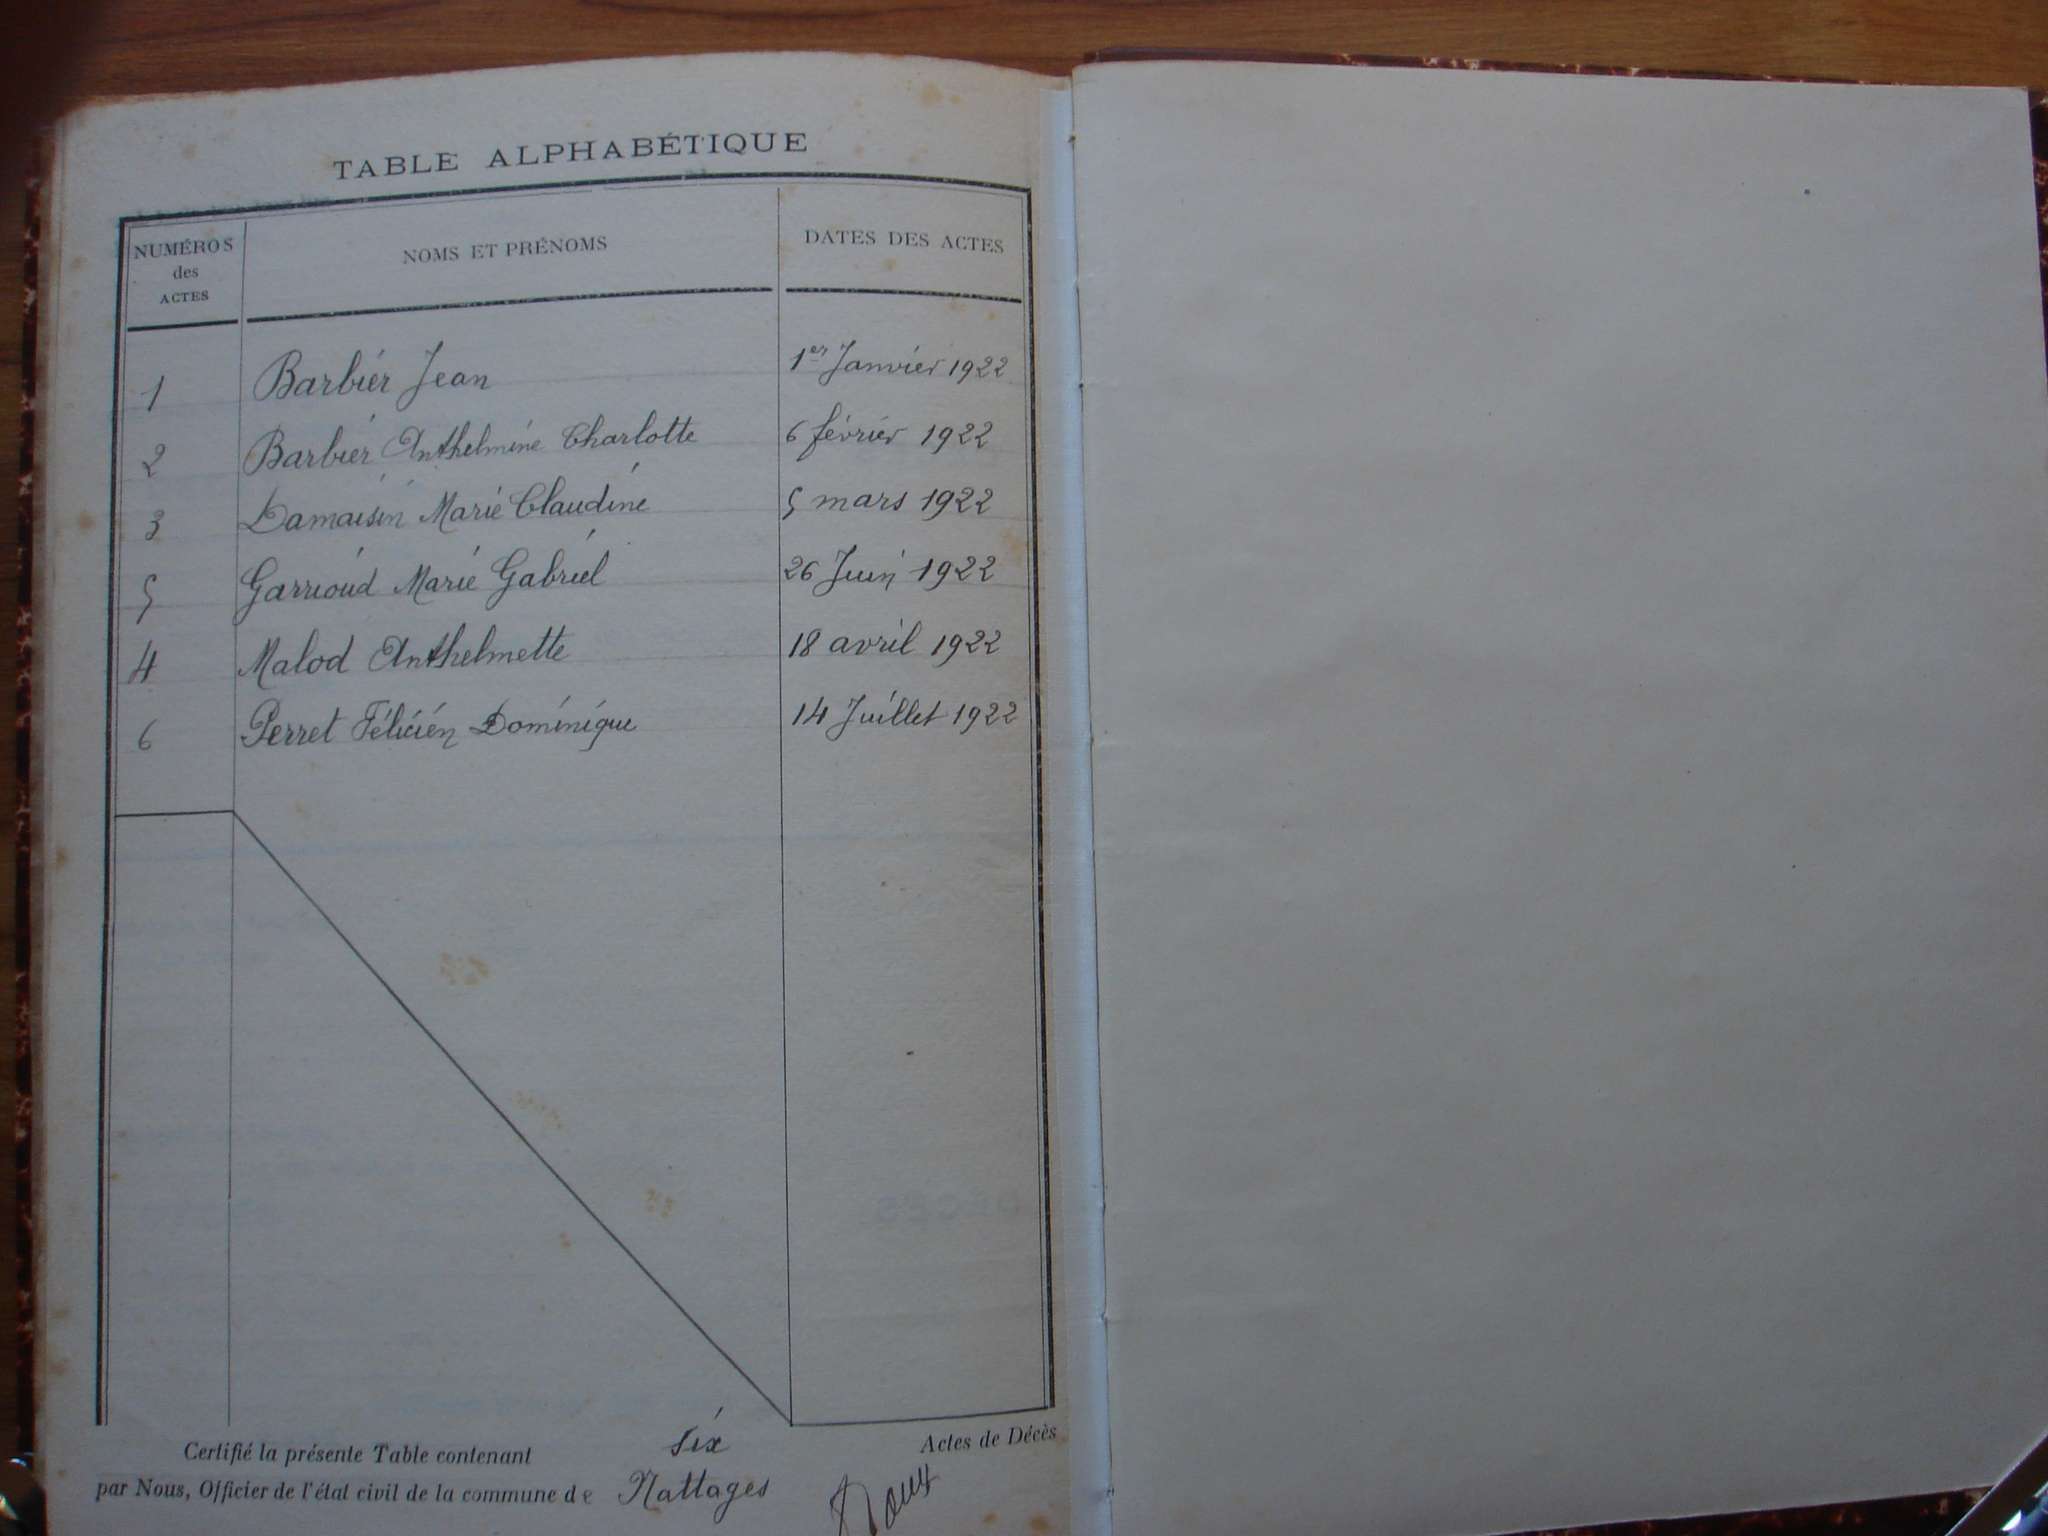 TABLE ALPHABÉTIQUE
NUMÉROS des ACTES NOMS ET PRÉNOMS DATES DES ACTES
1 Barbier Jean 1er Janvier 1922
2 Barbier Anthelmine Charlotte 6 février 1922
3 Damaisin Marie Claudine 5 mars 1922
5 Garrioud Marie Gabriel 26 Juin 1922
4 Malod Anthelmette 18 avril 1922
6 Perret Félicien Dominique 14 Juillet 1922
Certifié la présente Table contenant six Actes de Décès
par Nous, Officier de l'état civil de la commune de Nattages